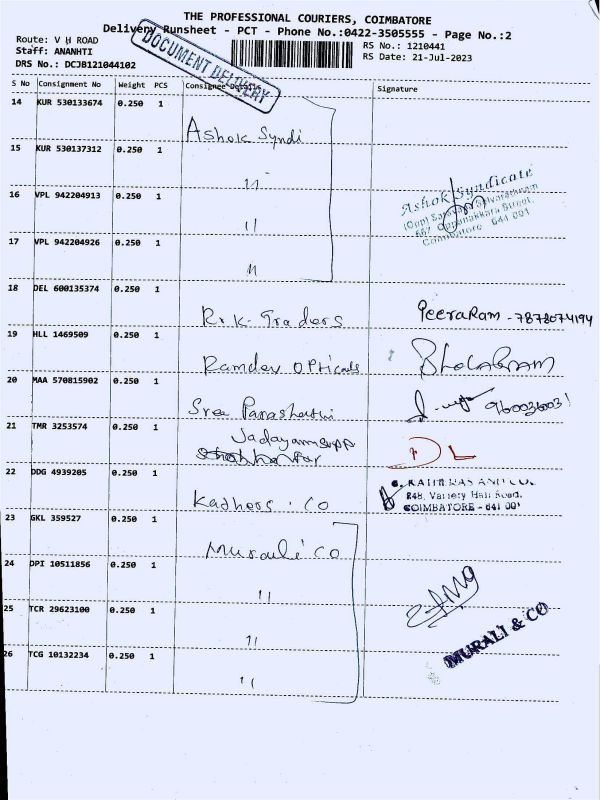 THE PROFESSIONAL COURIERS, COIMBATORE
Delivery Runsheet - PCT - Phone No.:0422-3505555 - Page No.:2
Route: V H ROAD
Staff: ANANHTI
DRS No.: DCJB121044102
RS No.: 1210441
RS Date: 21-Jul-2023
DOCUMENT DELIVERY
S No Consignment No Weight PCS Consignee Details Signature
14 KUR 530133674 0.250 1
Ashok Syndi
15 KUR 530137312 0.250 1
"
16 VPL 942204913 0.250 1
"
Ashok Syndicate
Coimbatore 641 001
17 VPL 942204926 0.250 1
"
18 DEL 600135374 0.250 1
R.K. Traders PeeraRam - 7878074194
19 HLL 1469509 0.250 1
Ramdev Opticals BholaRAM
20 MAA 570815902 0.250 1
Sree
21 TMR 3253574 0.250 1
DL
22 DDG 4939205 0.250 1
Kadhers . Co
848, Variety Hall Road,
COIMBATORE - 641 001
23 GKL 359527 0.250 1
Murali Co
24 DPI 10511856 0.250 1
"
25 TCR 29623100 0.250 1
"
MURALI & CO
26 TCG 10132234 0.250 1
"